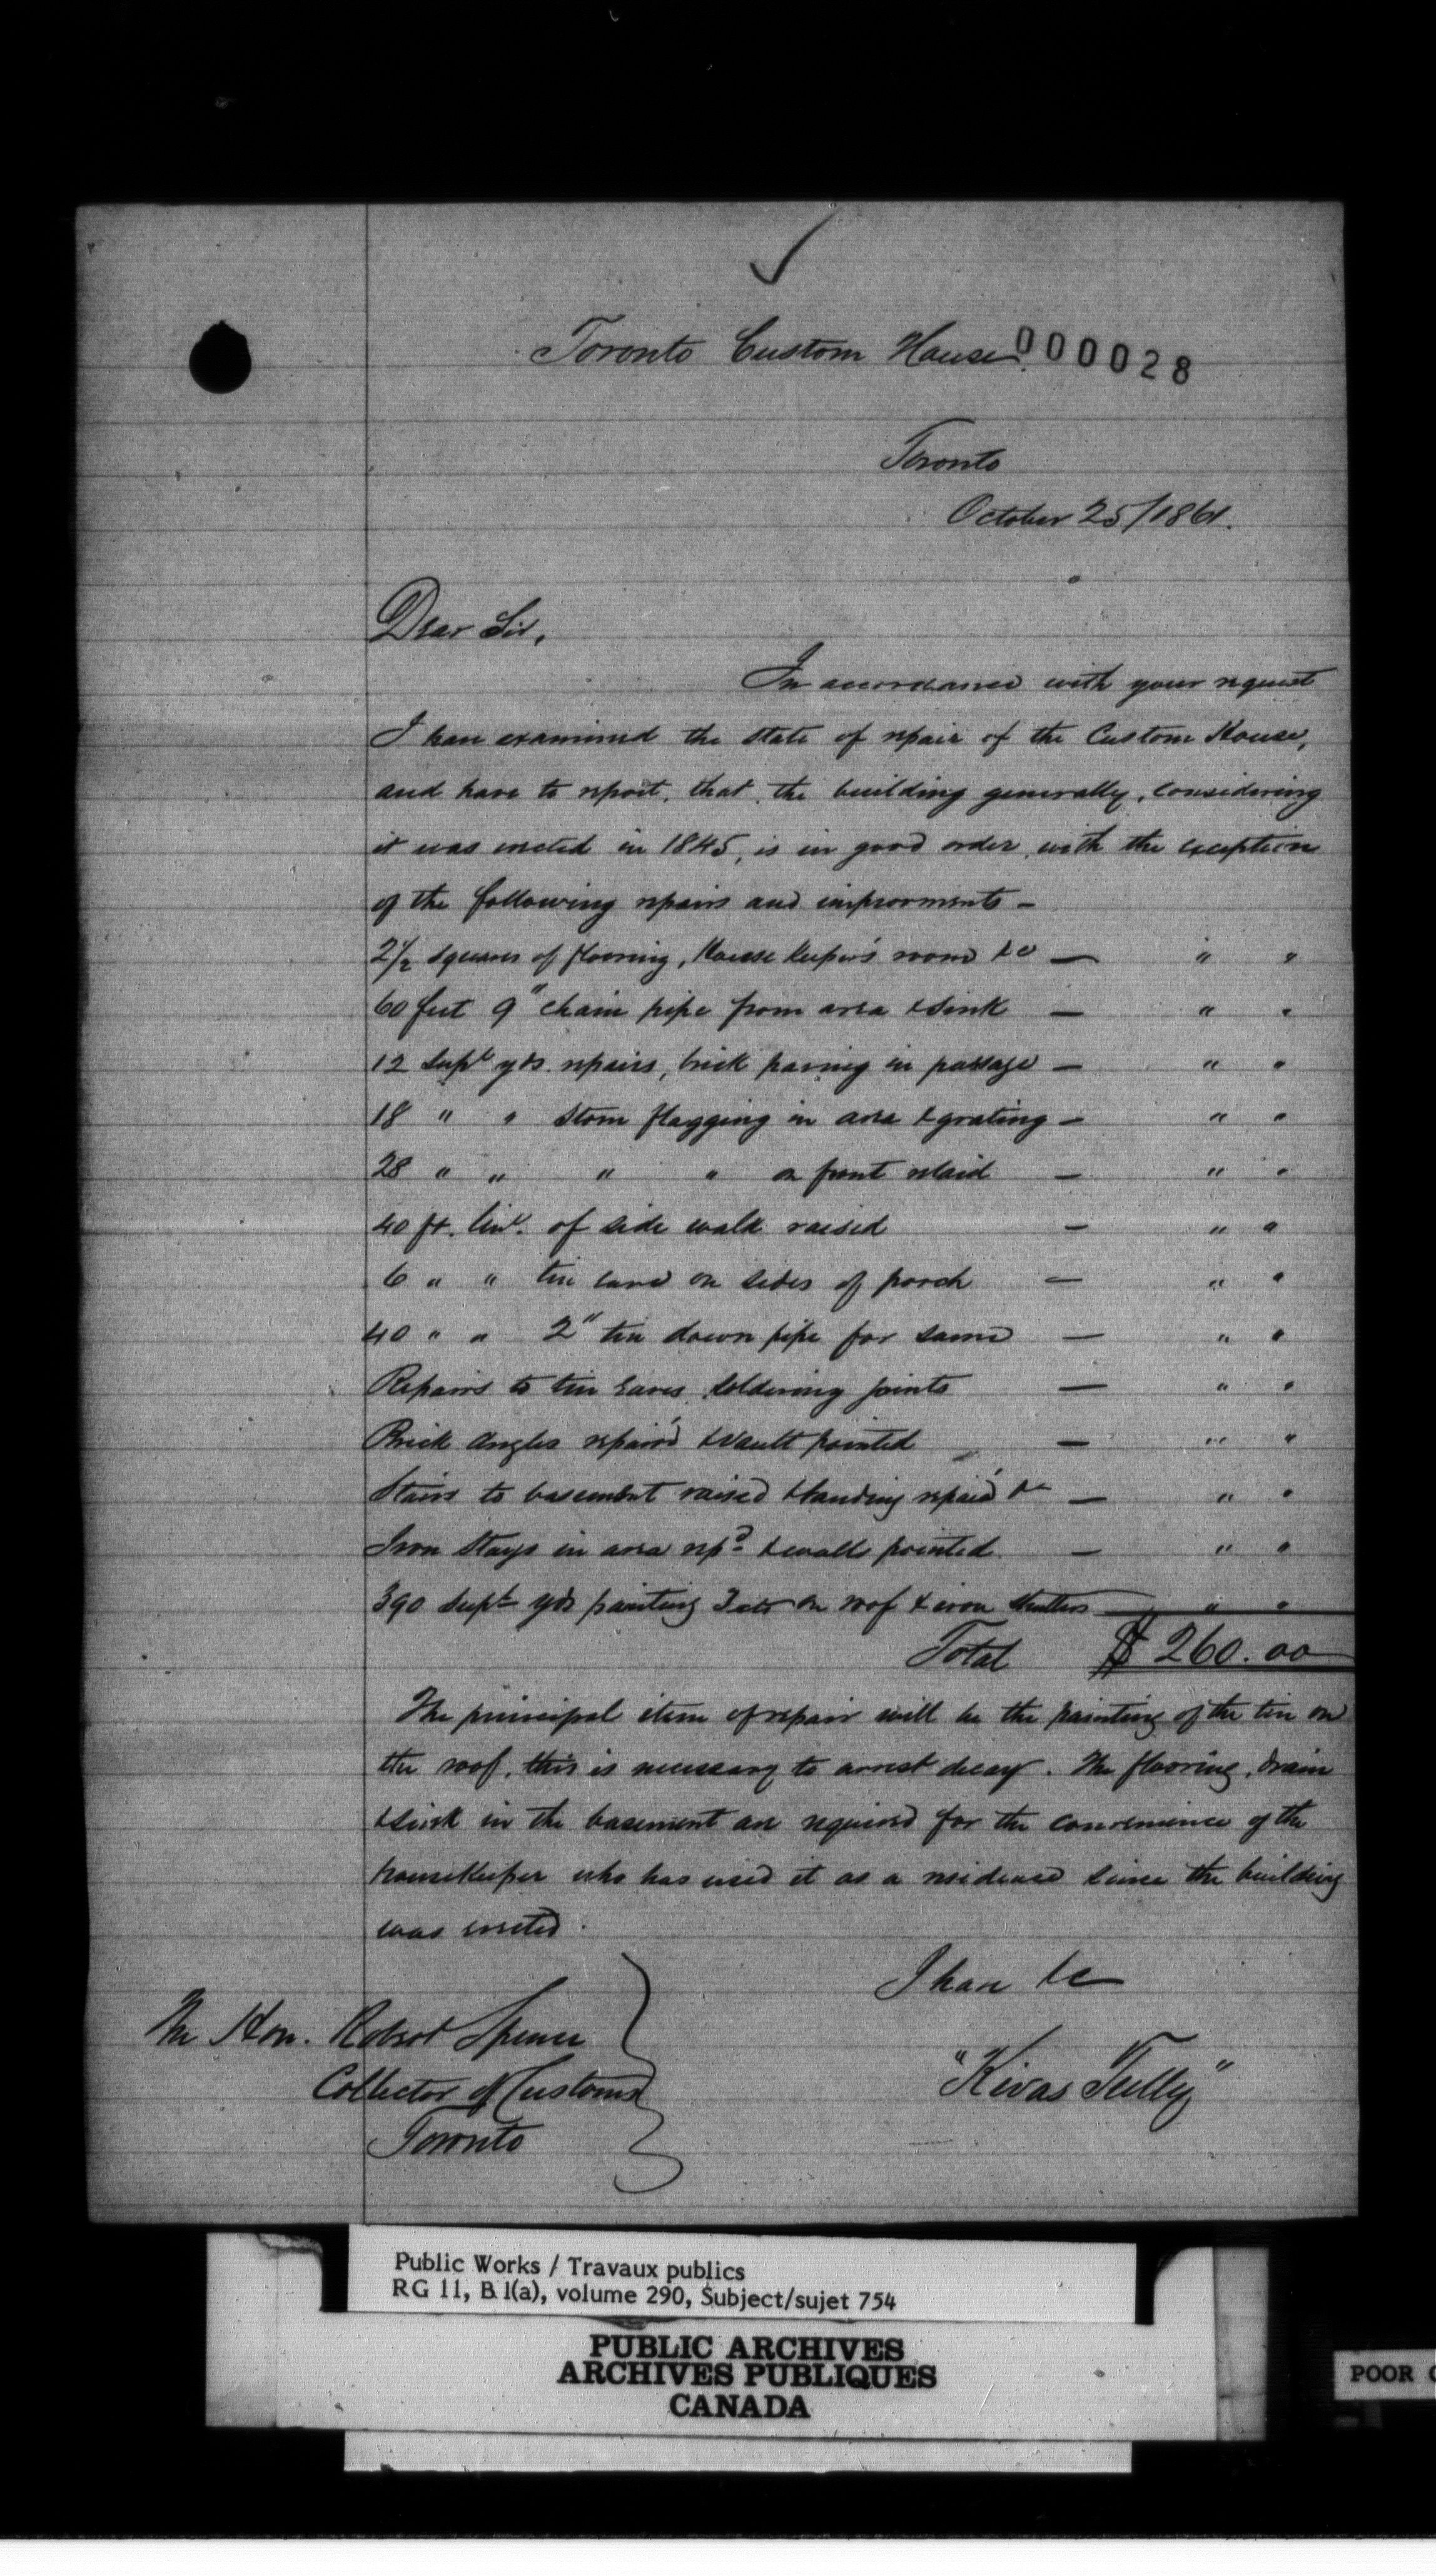 Toronto Custom House.
000028
Toronto
October 25/1861.
Dear Sir,
In accordance with your request
I have examined the state of repair of the Custom House,
and have to report, that, the building generally, considering
it was erected in 1845, is in good order, with the exception
of the following repairs and improvements –
2½ squares of flooring, House Keeper's room &c — " "
60 feet 9" drain pipe from area & sink — " "
12 Supl yds. repairs, brick paving in passage — " "
18 " " Stone flagging in area & grating — " "
28 " " " " on front relaid — " "
40 ft. linl. of side walk raised — " "
6 " " tin eave on sides of porch — " "
40 " " 2" tin down pipe for same — " "
Repairs to tin Eaves, soldering joints — " "
Brick Angles repair'd & Vault pointed — " "
Stairs to basement raised & landing repair'd &c — " "
Iron Stays in area repd & walls pointed. — " "
390 Supl yds painting 3 cts on roof & iron Shutters — " "
Total $ 260.00
The principal item of repair will be the painting of the tin on
the roof, this is necessary to arrest decay. The flooring, drain
& sink in the basement are required for the convenience of the
housekeeper who has used it as a residence since the building
was erected.
I have &c
The Hon. Robert Spence
Collector of Customs
Toronto
"Kivas Tully"
Public Works / Travaux publics
RG 11, B 1(a), volume 290, Subject/sujet 754
PUBLIC ARCHIVES
ARCHIVES PUBLIQUES
CANADA
POOR